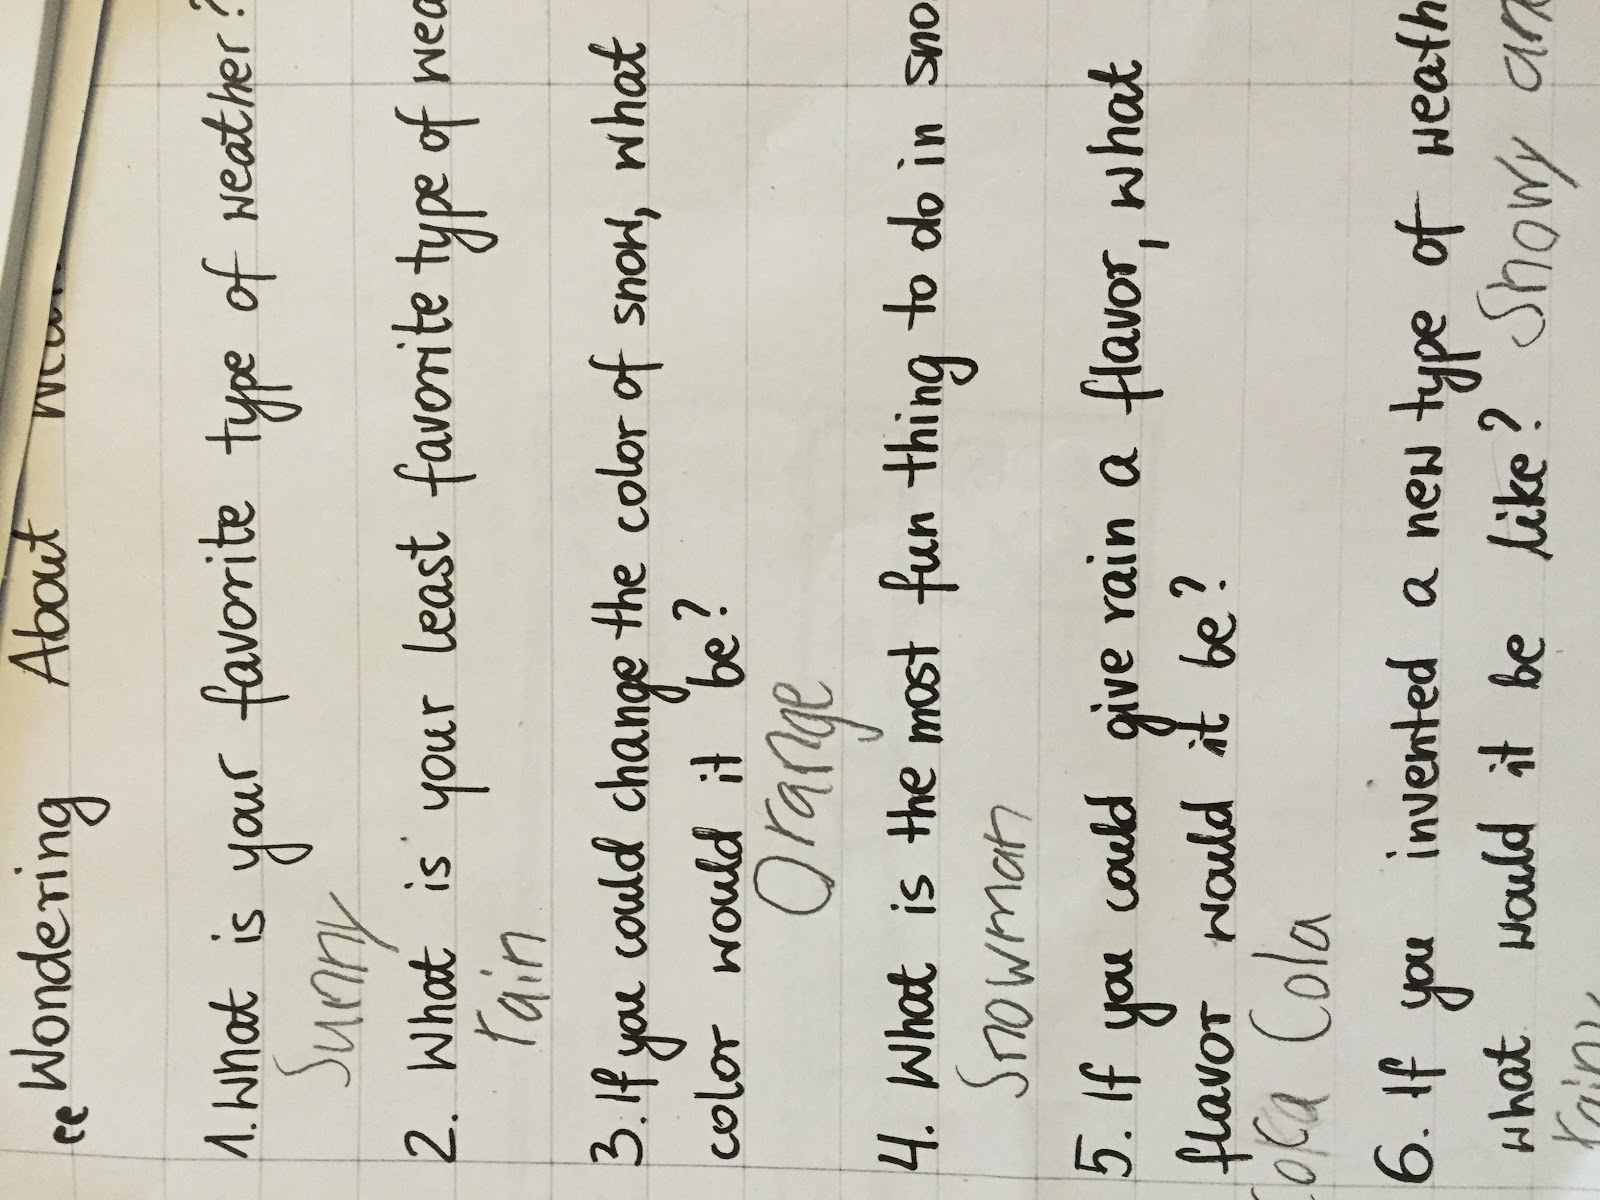 "Wondering About
1. What is your favorite type of weather?
Sunny
2. What is your least favorite type of wea
rain
3. If you could change the color of snow, what
color would it be?
Orange
4. What is the most fun thing to do in sno
Snowman
5. If you could give rain a flavor, what
flavor would it be?
Coca Cola
6. If you invented a new type of weath
what would it be like? Snowy and
rainy